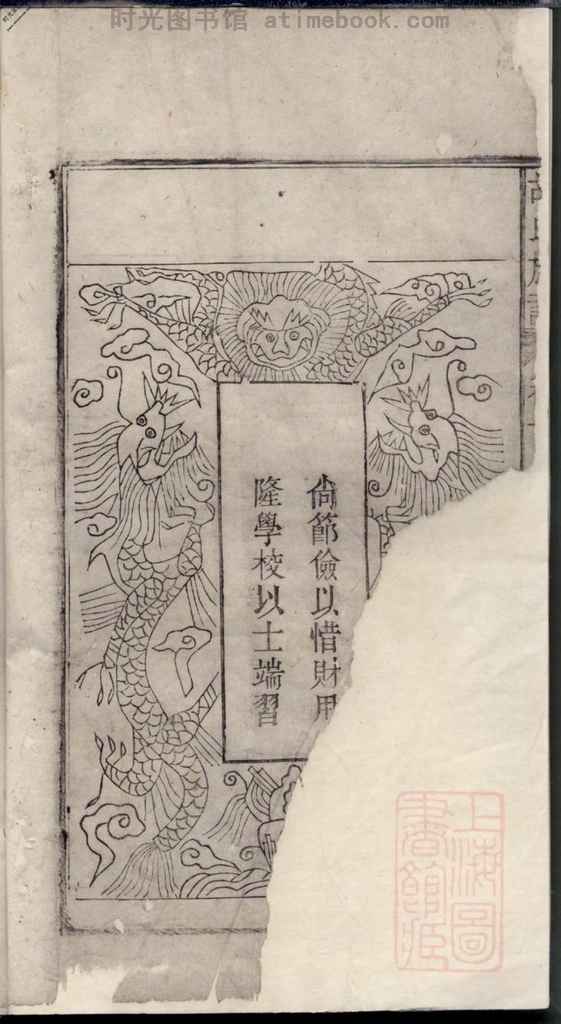 时光图书馆 atimebook.com
尙節儉以惜財用
隆學校以士端習
上海圖
書館藏